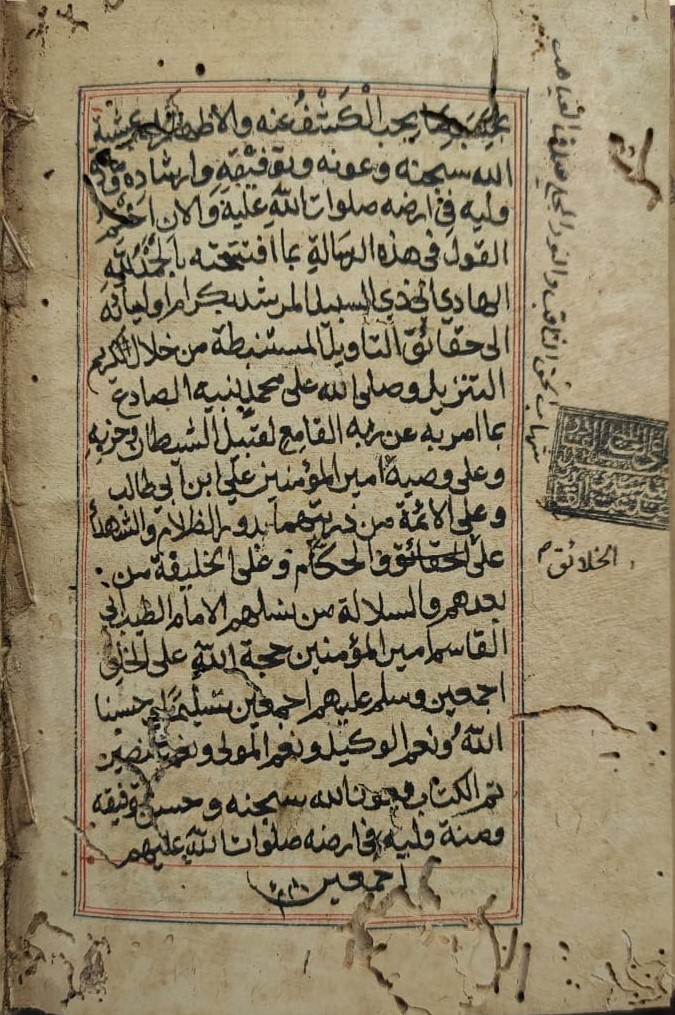 يجب الكشف عنه والاظهار بمشية
الله سبحنه وعونه وتوفيقه وارشاده
وليه في ارضه صلوات الله عليه والان اختم
القول في هذه الرسالة بما افتتحته بالحمد لله
الهادي الى ذي السبيل المرشد بكرام اوليائه
الى حقائق التاويل المستنبطة من خلال كريم
التنزيل وصلى الله على محمد نبيه الصادع
بما امر به عن ربه القامع لقبيل الشيطان وحزبه
وعلى وصيه امير المؤمنين علي ابن ابي طالب
وعلى الائمة من ذريتهما بدور الظلام والشهدآ
على الحقائق والحكام وعلى الخليفة من
بعدهم والسلالة من نسلهم الامام الطيب ابي
القاسم امير المؤمنين حجة الله على الخلق
اجمعين وسلم عليهم اجمعين تسليما حسبنا
الله ونعم الوكيل ونعم المولى ونعم النصير
تم الكتاب بعون الله سبحنه وحسن توفيقه
ومنة وليه في ارضه صلوات الله عليهم
اجمعين
الخلائق